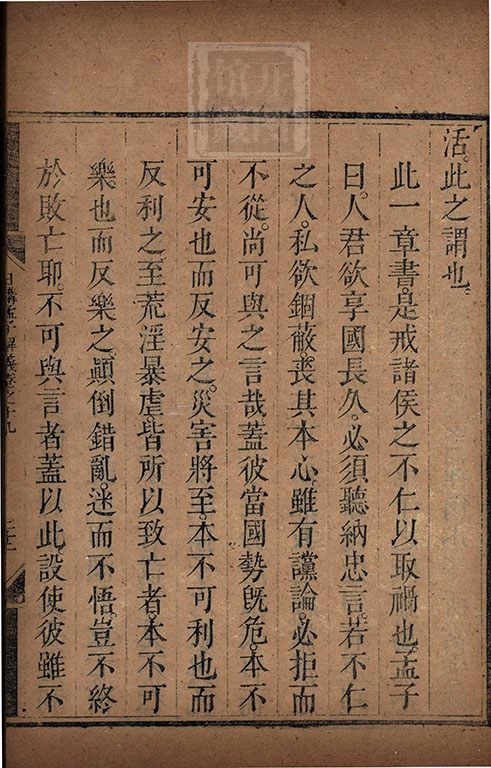 活。此之謂也。
此一章書。是戒諸侯之不仁以取禍也。孟子
曰。人君欲享國長久。必須聽納忠言。若不仁
之人。私欲錮蔽。喪其本心。雖有讜論。必拒而
不從。尚可與之言哉。蓋彼當國勢旣危。本不
可安也。而反安之。災害將至。本不可利也。而
反利之。至荒淫暴虐。皆所以致亡者。本不可
樂也。而反樂之。顛倒錯亂。迷而不悟。豈不終
於敗亡耶。不可與言者。蓋以此。設使彼雖不
日講孟子解義卷之十九